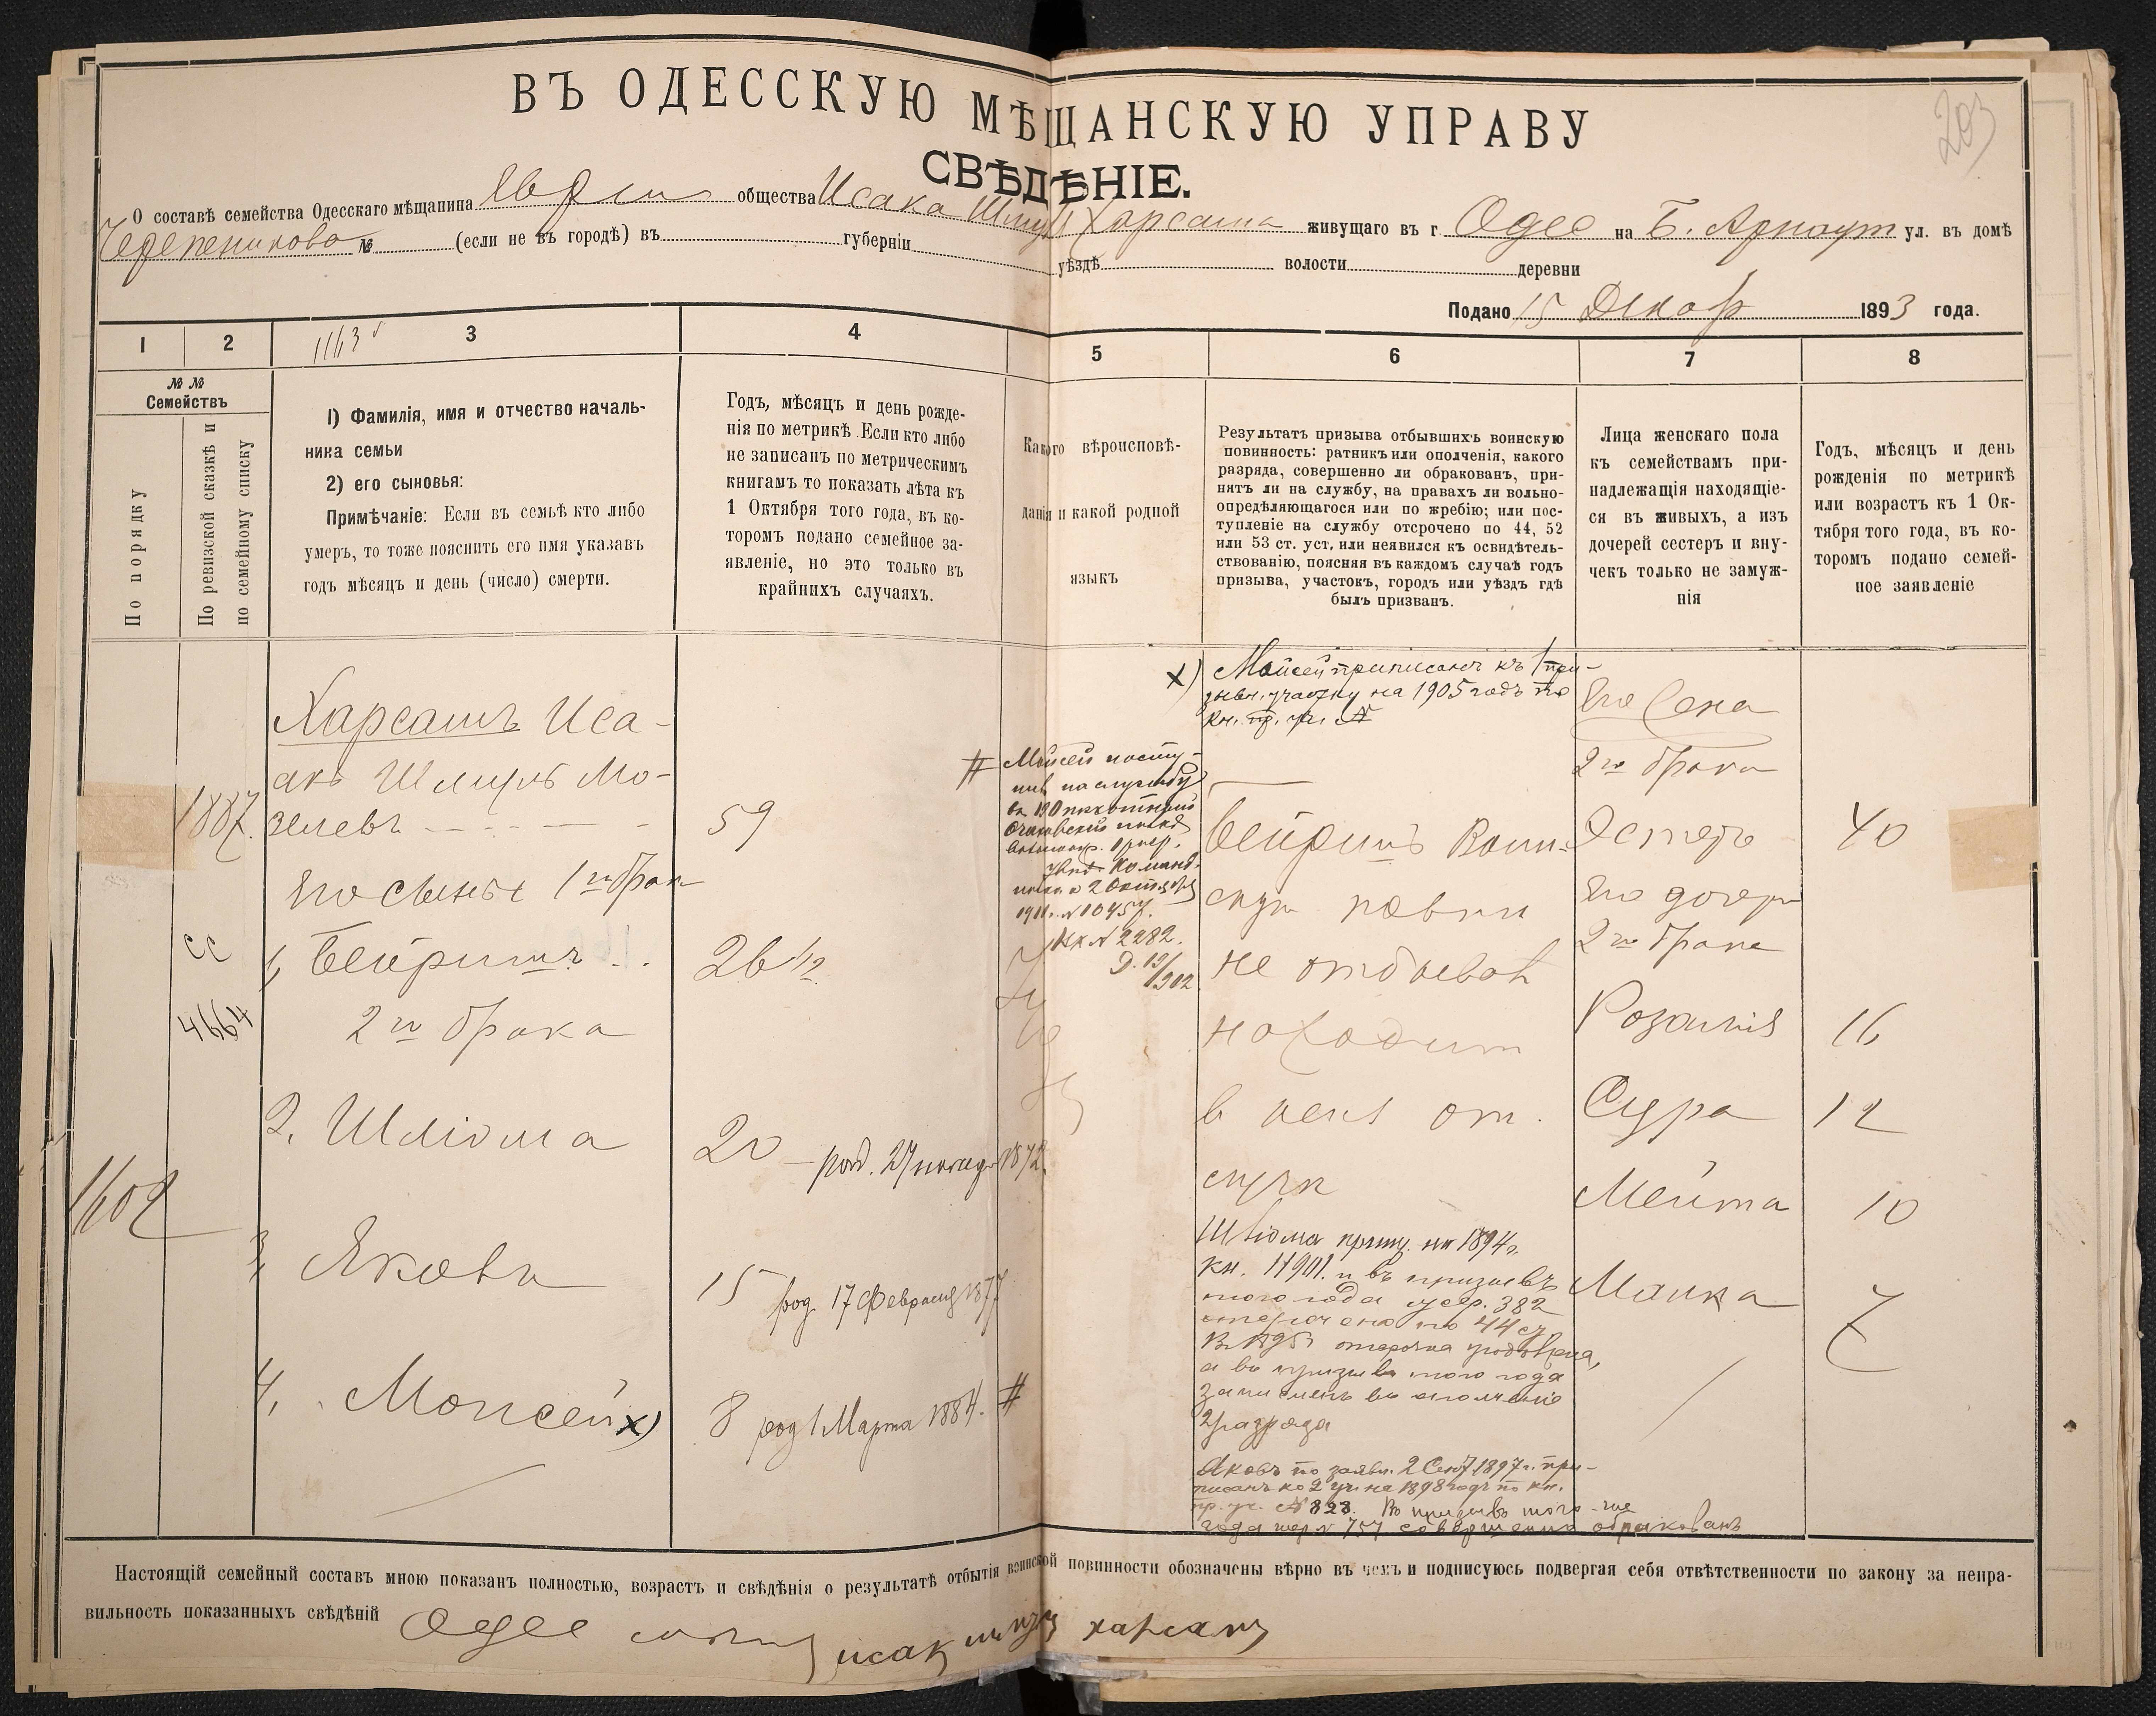 ВЪ ОДЕССКУЮ МѢЩАНСКУЮ УПРАВУ
СВѢДѢНІЕ.
203
О составѣ семейства Одесскаго мѣщанина общества Исака Шмуля Харсаша живущаго въ г Одес на Б. Арнаут ул. въ домѣ
Черепеникова № (если не въ городѣ) въ губерніи уѣздѣ волости деревни
Подано 15 Декабр 1893 года.
1 2 1163 3 4 5 6 7 8
№ № Семействъ
По порядку
По ревизской сказкѣ и
по семейному списку
1) Фамилія, имя и отчество началь-
ника семьи
2) его сыновья:
Примѣчаніе: Если въ семьѣ кто либо
умеръ, то тоже пояснить его имя указавъ
годъ мѣсяцъ и день (число) смерти.
Годъ, мѣсяцъ и день рожде-
нія по метрикѣ. Если кто либо
не записанъ по метрическимъ
книгамъ то показать лѣта къ
1 Октября того года, въ ко-
торомъ подано семейное за-
явленіе, но это только въ
крайнихъ случаяхъ.
Какого вѣроисповѣ-
данія и какой родной
языкъ
Результатъ призыва отбывшихъ воинскую
повинность: ратникъ или ополченія, какого
разряда, совершенно ли обракованъ, при-
нятъ ли на службу, на правахъ ли вольно-
опредѣляющагося или по жребію; или пос-
тупленіе на службу отсрочено по 44, 52
или 53 ст. уст. или неявился къ освидѣтель-
ствованію, поясняя въ каждомъ случаѣ годъ
призыва, участокъ, городъ или уѣздъ гдѣ
былъ призванъ.
Лица женскаго пола
къ семействамъ при-
надлежащія находящіе-
ся въ живыхъ, а изъ
дочерей сестеръ и вну-
чекъ только не замуж-
нія
Годъ, мѣсяцъ и день
рожденія по метрикѣ
или возрастъ къ 1 Ок-
тября того года, въ ко-
торомъ подано семей-
ное заявленіе
1887.
сс
4664
1602
Харсашъ Иса-
акъ Шмуль Мо-
зелевъ
59
Его сыновья 1го брак
1, Бейришъ
26 1/2
2го брака
2. Шліома
20 — род. 27 ноября 1872.
3, Яковъ
15 род. 17 Февраля 1877
4, Моисей х)
8 род 1 Марта 1884. #
# Мойсей посту-
на службу
въ 190 пѣхотный
Очаковскій полкъ
2 Октября
1911. №10457.
№ 2282.
Д. 19/902
х) Мойсей приписанъ къ 1 при-
зывн. участку на 1905 годъ по
кн. пр. уч. №
Бейришъ Воин-
скую повин
не отбывал
находит
в
Шліома припис. на 1894 г.
кн. и въ призывъ
того года жер. 382
отсрочено по 44 ст.
В 1895 отсрочка
а въ призывъ того года
Зачисленъ въ ополченіе
2 разряда
Яковъ по заявл. 2 Сент 1897 г. при-
писанъ ко 2 уч. на 1898 годъ по кн.
пр. уч. № 828. Въ призывъ того -же
года жер № 757 совершенно обракованъ
Его жена
2го брака
Эстеръ 40
Его дочери
2го брака
Розалия 16
Сура 12
Мейта 10
Малка 7
Настоящій семейный составъ мною показанъ полностью, возрастъ и свѣдѣнія о результатѣ отбытія воинской повинности обозначены вѣрно въ чемъ и подписуюсь подвергая себя отвѣтственности по закону за непра-
вильность показанныхъ свѣдѣній Одес исак харсаш